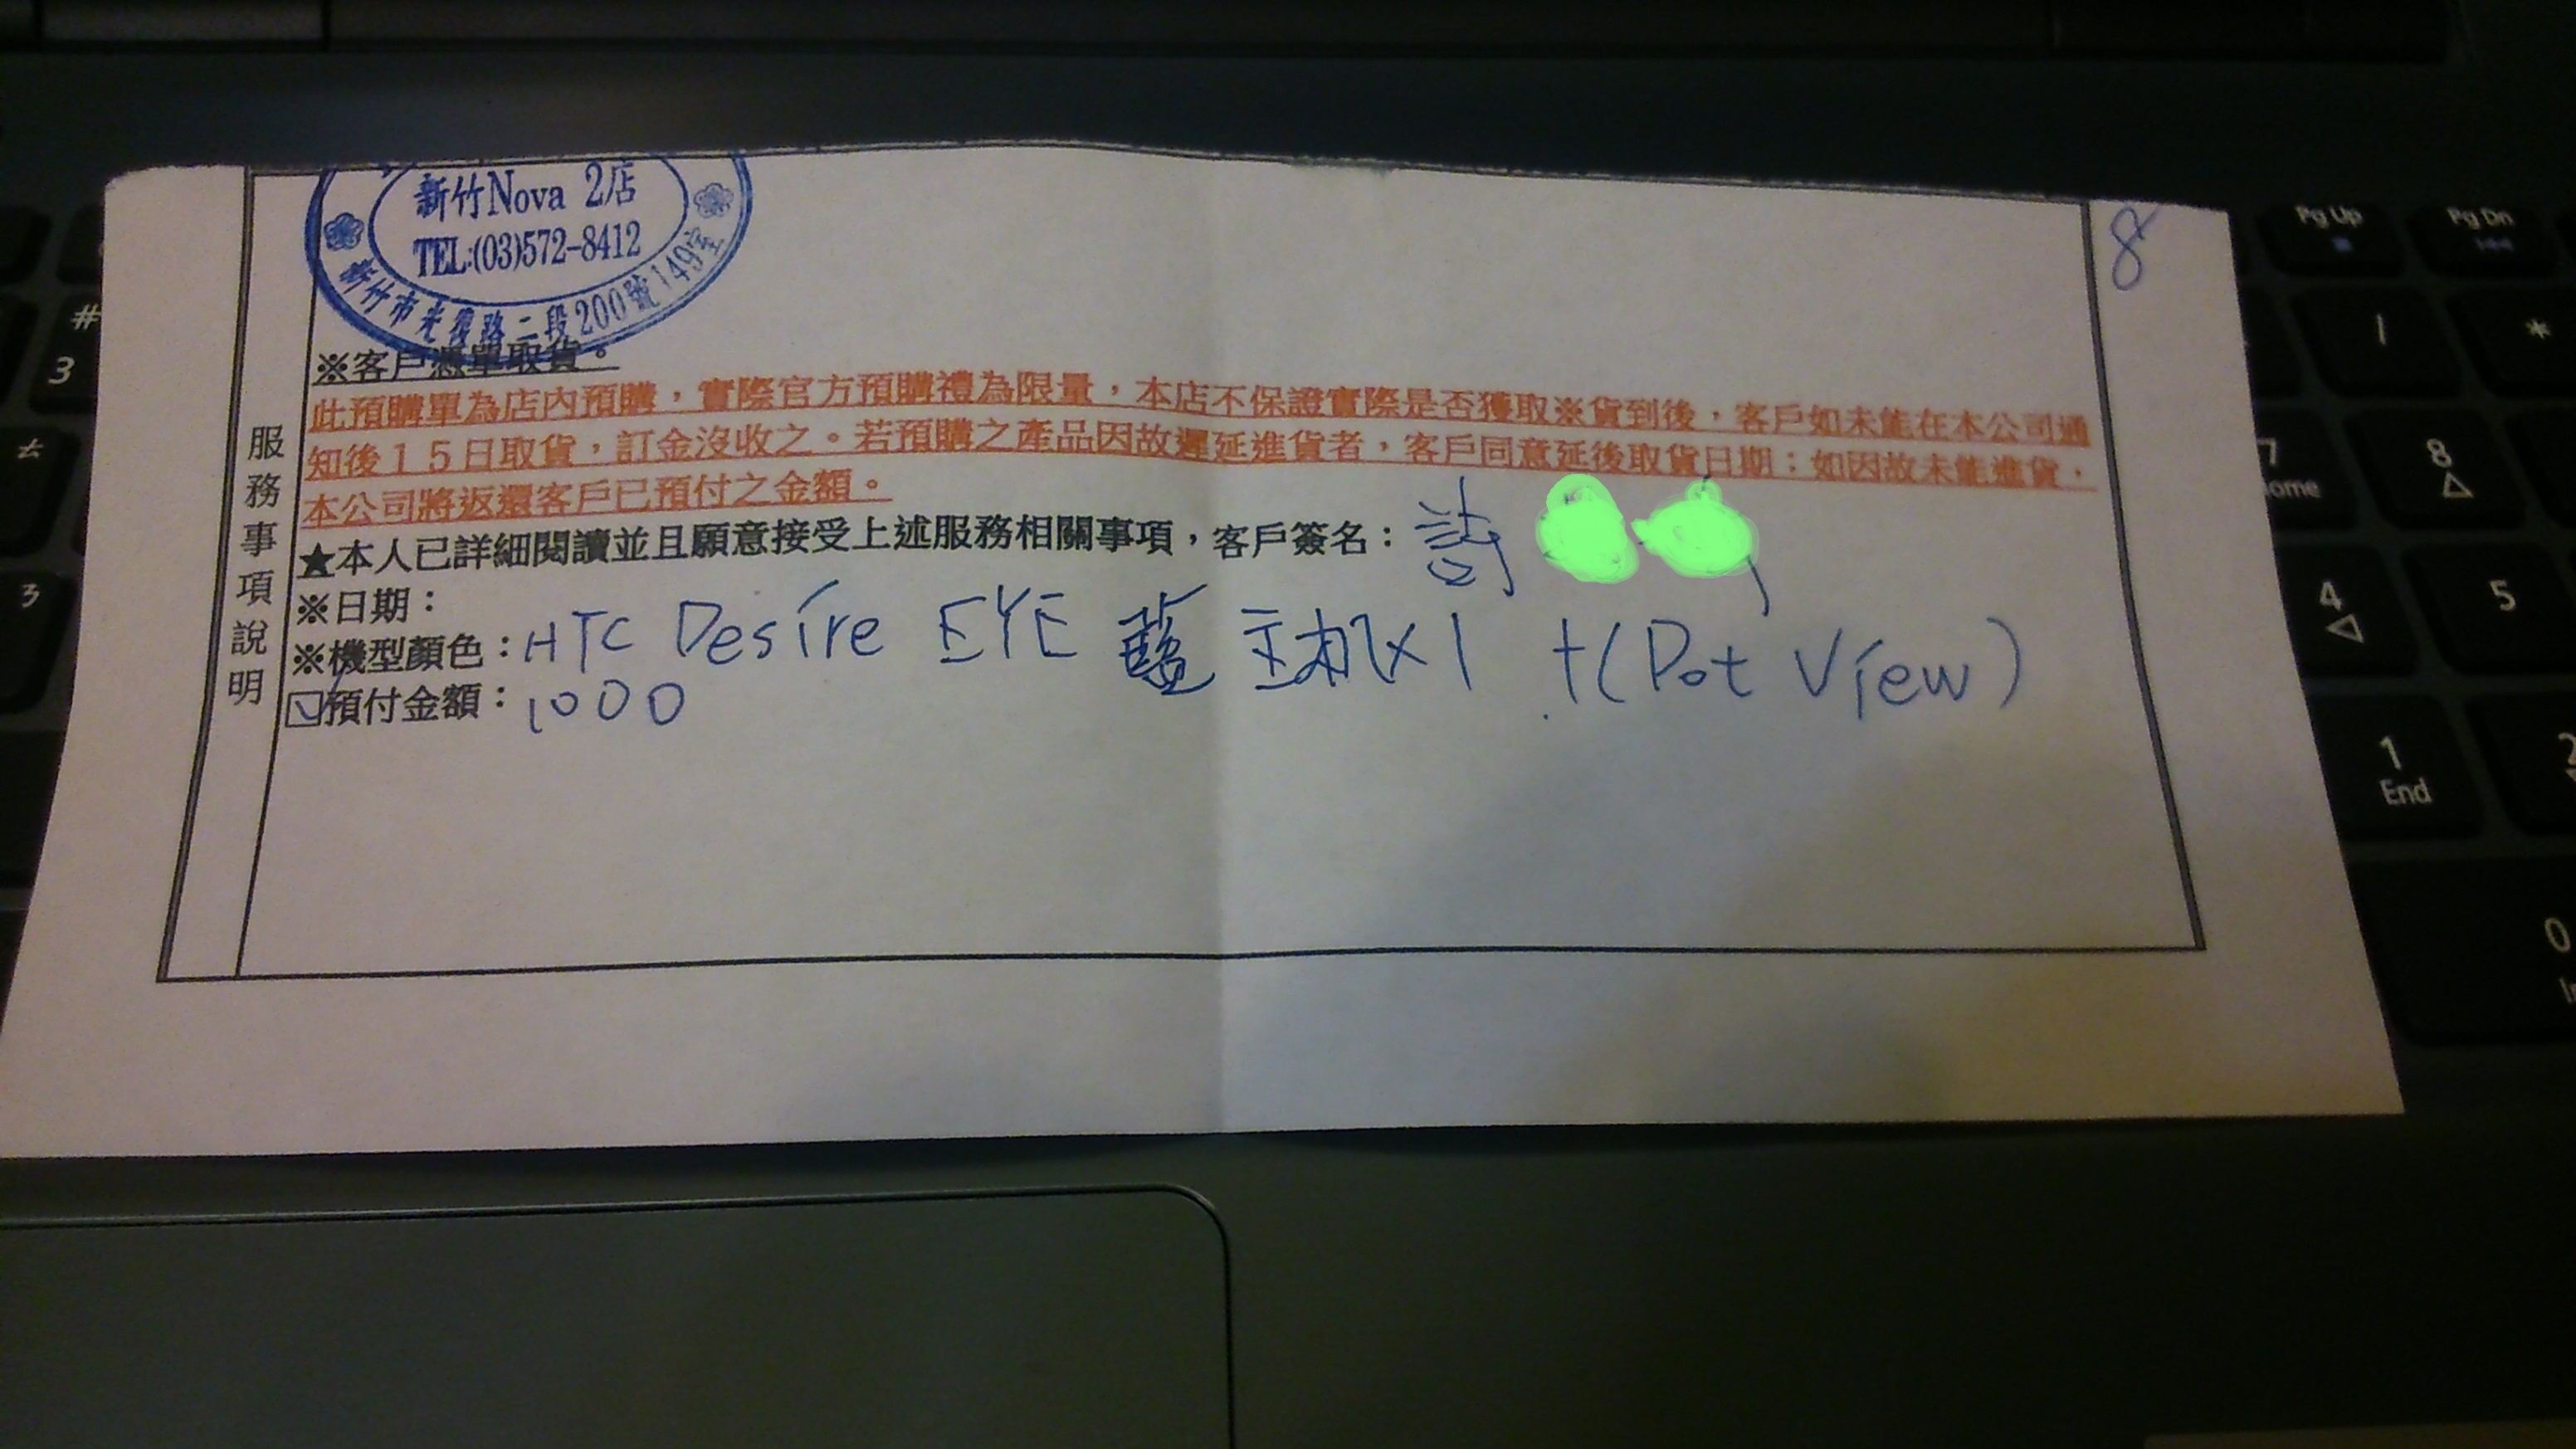 新竹Nova 2店
TEL:(03)572-8412
新竹市光復路二段200號149室
8
服務事項說明
※客戶憑單取貨。
此預購單為店內預購，實際官方預購禮為限量，本店不保證實際是否獲取※貨到後，客戶如未能在本公司通
知後１５日取貨，訂金沒收之。若預購之產品因故遲延進貨者，客戶同意延後取貨日期；如因故未能進貨，
本公司將返還客戶已預付之金額。
★本人已詳細閱讀並且願意接受上述服務相關事項，客戶簽名：
※日期：
※機型顏色：HTC Desire EYE 藍 主机x1 +(Dot View)
☑預付金額：1000
#
3
3
Pg Up
Pg Dn
/
*
7
Home
8
4
5
1
End
2
0